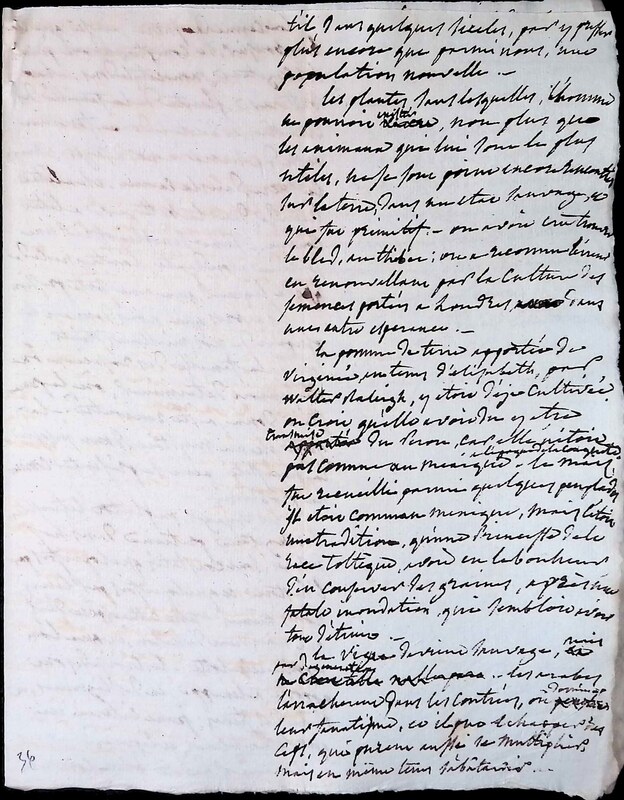 t'il dans quelques siecles, par y
plus encore que parmi nous, une
population nouvelle. -
les plantes, sans lesquelles, l'homme
ne pourroit exister, non plus que
les animaux qui lui sont le plus
utiles, ne se sont point encore rencontrés
sur la terre, dans un etat sauvage, et
qui fut primitif. - on avoit cru trouver
le bled, au thibet; on a reconnu
en renouvellant par la culture des
semences portés a Londres dans
une autre esperance. -
la pomme de terre apportée de
Virginie, au tems d'elisabeth, par
Walter Raleigh, y etoit deja cultivée
on croit qu'elle avoit du y etre
transmise du Perou, car elle n'etoit
pas connue au mexique a l'epoque de la conquete. le mais
fut recueilli parmi quelques peuplades
Il etoit commun mexique, mais c'etoit
une tradition, qu'une Princesse de la
race Tolteque, avoit eu le bonheur
d'en conserver des graines, après une
fatale inondation, qui sembloit avoir
tout détruit. -
la vigne devient sauvage, mais
les arabes
l'arracherent dans les contrées, ou domina
leur fanatisme, et il put echapper des
ceps, qui purent aussi se multiplier,
mais en même tems s'abâtardir...
36